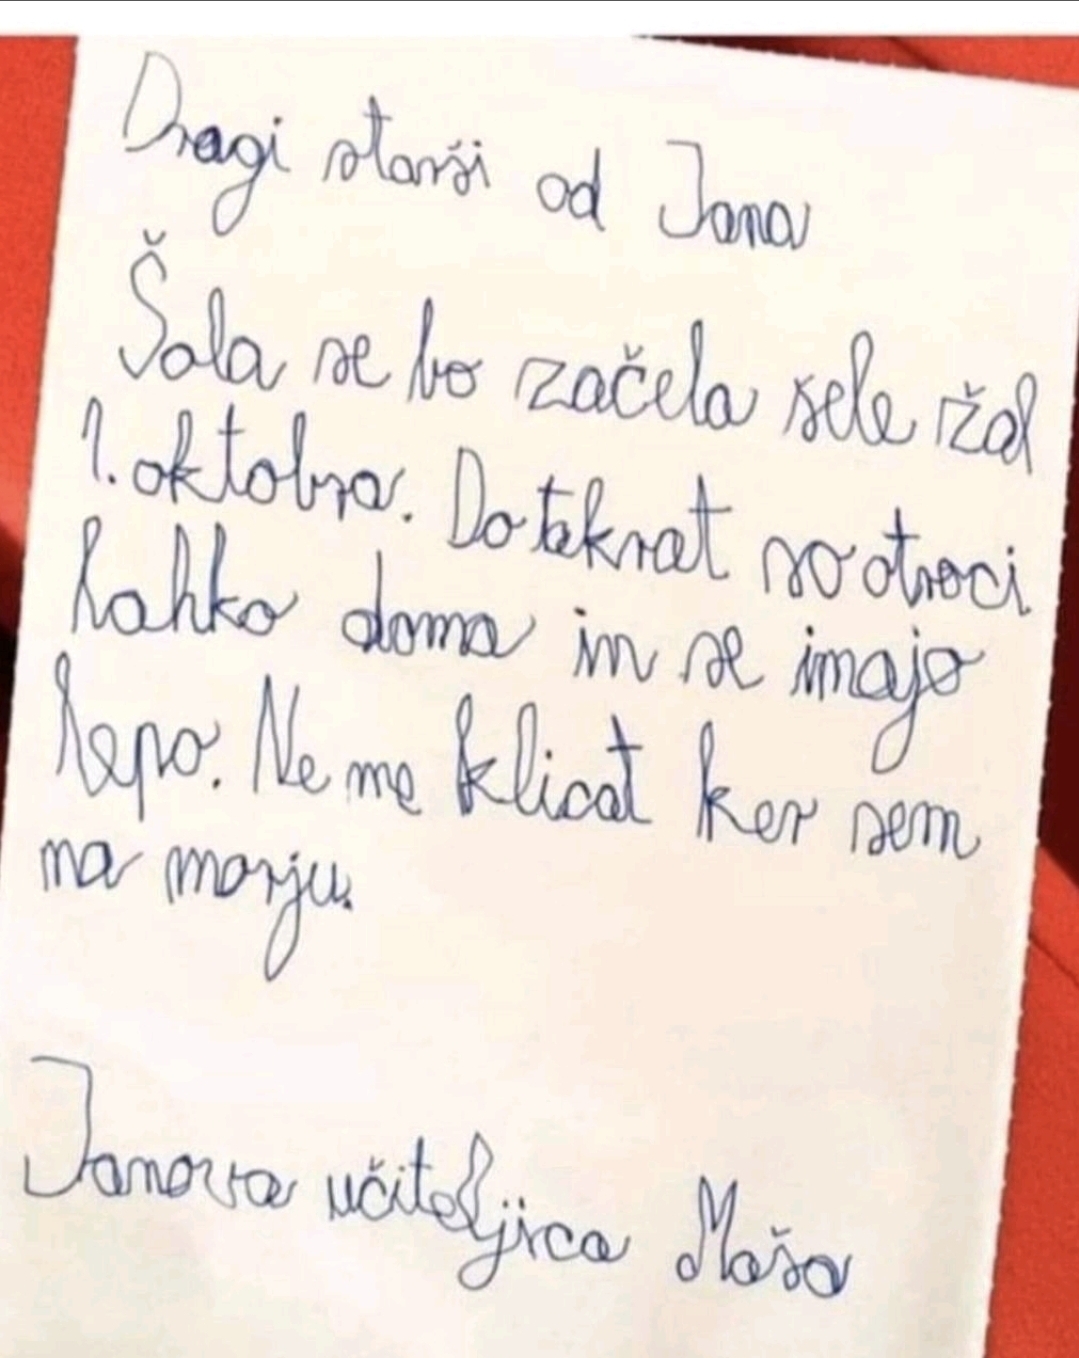 Dragi starši od Jana
Šola se bo začela šele ržal
1. oktobra. Do takrat so otroci
lahko doma in se imajo
lepo. Ne me klicat ker sem
na morju.
Janova učiteljica Maša